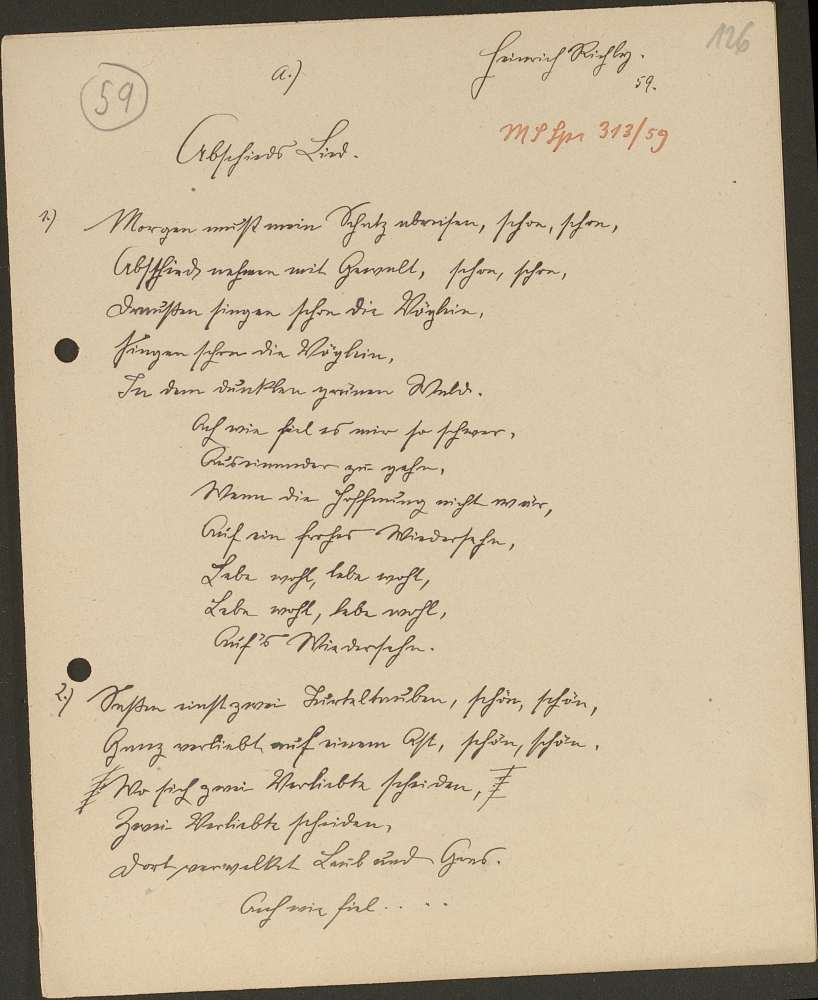 126
59
a.)
Heinrich Richly.
59.
Abschieds Lied.
1.) Morgen muß mein Schatz abreisen, schon, schon,
Abschied nehmen mit Gewalt, schon, schon,
Draußen singen schon die Vöglein,
Singen schon die Vöglein,
In dem dunklen grünen Wald.
Ach wie fiel es mir so schwer,
Auseinander zu gehn,
Wenn die Hoffnung nicht wär,
Auf ein frohes Wiedersehn,
Lebe wohl, lebe wohl,
Lebe wohl, lebe wohl,
Auf's Wiedersehn.
2.) Saßen einst zwei Turteltauben, schön, schön,
Ganz verliebt auf einem Ast, schön, schön.
Wo sich zwei Verliebte scheiden,
Zwei Verliebte scheiden,
Dort verwelkt Laub und Gras.
Auch wie fiel . . . .